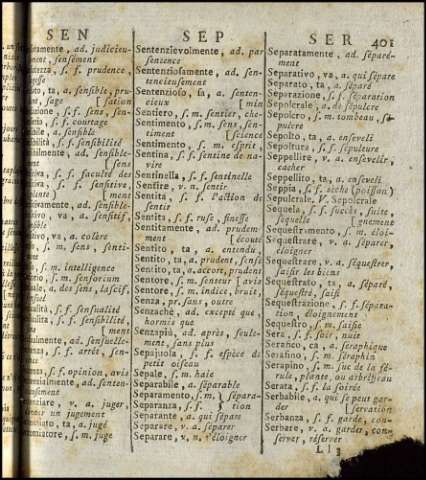 SEN SEP SER 401
ad. judicieu-
ment
s. f. prudence,
gesse
ta, a, sensible, pru-
sage [sation
s. f. sens, sen-
s. f. courtage
a, sensible
s. f. sensibilité
ad. sensible-
[sens
s. f. faculté des
s. f. sensitive,
[ment
ad. sensible-
va, a sensitif,
sensible
va, a colère
s. m. sens, senti-
s. m. intelligence
s. m. sensorium
a, des sens, lascif,
s. f. sensualité
s. f. sensibilité
[ment
ad. sensuelle-
s. f. arrêt, sen-
s. f. opinion, avis
ad. senten-
v. a. juger,
un jugement
ta, a, jugé
s. m. juge
Sentenzievolmente, ad. par
sentence
Sentenziosamente, ad. sen-
tencieusement
Sentenzioso, sa, a. senten-
cieux [min
Sentiero, s. m. sentier, che-
Sentimento, s. m. sens, sen-
timent [science
Sentimento, s. m. esprit,
Sentina, s. f. sentine de na-
vire
Sentinella, s. f. sentinelle
Sentire, v. n. sentir
Sentita, s. f. l'action de
sentir
Sentita, s. f. ruse, finesse
Sentitamente, ad. prudem-
ment [écouté
Sentito, ta, a entendu,
Sentito, ta, a, prudent, sensé
Sentito, ta, a, accort, prudent
Sentore, s. m. senteur [avis
Sentore, s. m. indice, bruit,
Senza, pr. sans, outre
Senzachè, ad. excepté que,
hormis que
Senzapiù, ad. après, seule-
ment, sans plus
Sepajuola, s. f. espèce de
petit oiseau
Sepale, s. m. haie
Separabile, a. séparable
Separamento, s. m. } sépara-
Separanza, s. f. } tion
Separante, a. qui sépare
Separare, v. a. séparer
Separare, v. n. éloigner
Separatamente, ad. séparé-
ment
Separativo, va, a. qui sépare
Separato, ta, a. séparé
Separazione, s. f. séparation
Sepolcrale, a. de sépulcre
Sepolcro, s. m. tombeau, sé-
pulcre
Sepolto, ta, a. enseveli
Sepoltura, s. f. sépulture
Seppellire, v. a. ensevelir,
cacher
Seppellito, ta, a. enseveli
Seppia, s. f. sèche (poisson)
Sepulcrale, V. Sepolcrale
Sequela, s. f. succès, suite,
séquelle [gnement
Sequestramento, s. m. éloi-
Sequestrare, v. a. séparer,
éloigner
Sequestrare, v. a. séquestrer,
saisir les biens
Sequestrato, ta, a. séparé,
séquestré, saisi
Sequestrazione, s. f. sépara-
tion, éloignement
Sequestro, s. m. saisie
Sera, s. f. soir, nuit
Serafico, ca, a. séraphique
Serafino, s. m. séraphin
Serapino, s. m. suc de la fé-
rula, plante, ou arbrisseau
Serata, s. f. la soirée
Serbabile, a. qui se peut gar-
der [servation
Serbanza, s. f. garde, con-
Serbare, v. a. garder, con-
server, réserver
L l 3